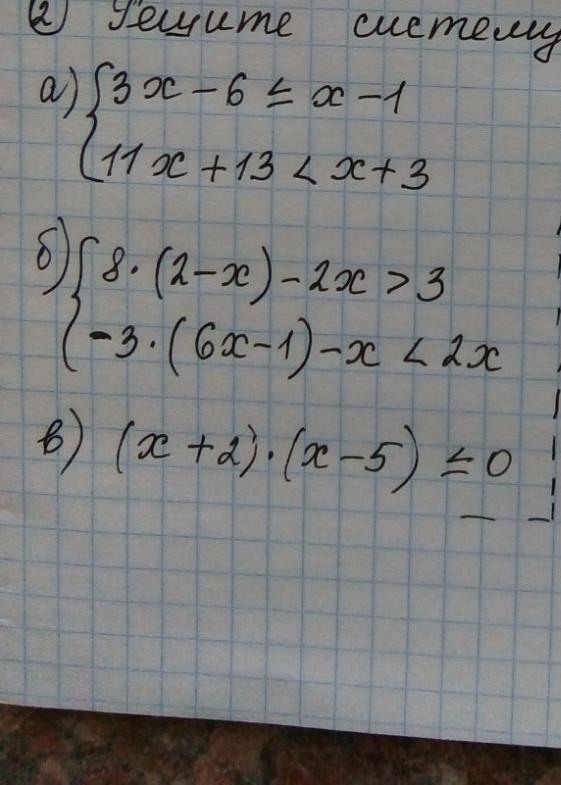 2) Решите систему
а) { 3x - 6 ≤ x - 1
11x + 13 < x + 3
б) { 8 · (2 - x) - 2x > 3
-3 · (6x - 1) - x < 2x
в) (x + 2) · (x - 5) ≤ 0